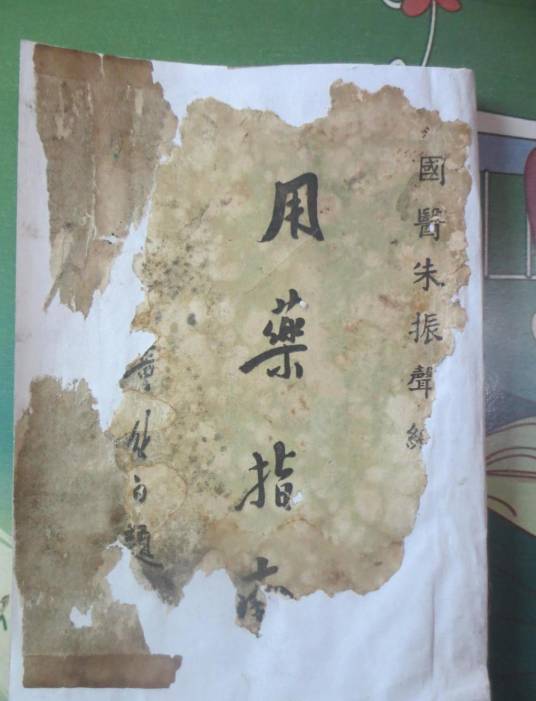 國醫朱振聲編
用藥指南
題